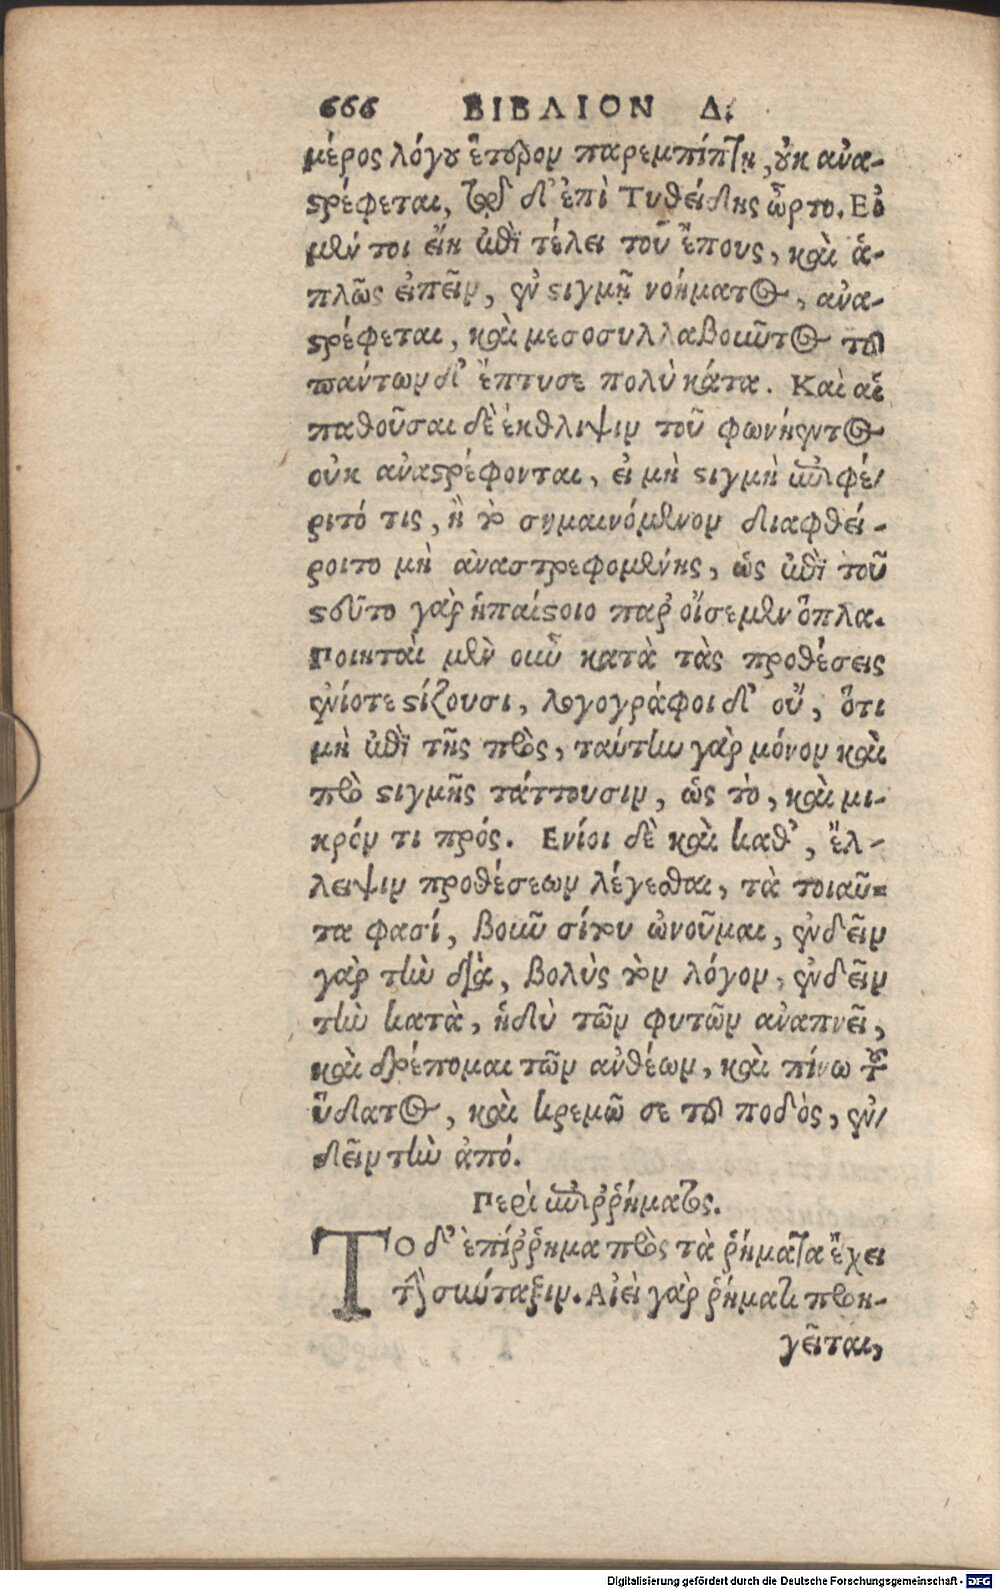 666 ΒΙΒΛΙΟΝ Δ.
μέρος λόγου ἕτερον παρεμπίπτῃ, οὐκ ἀνα-
στρέφεται, τῷ δ' ἐπὶ Τυδείδης ὦρτο. Εἰ
μέν τοι εἴη ἐπὶ τέλει τοῦ ἔπους, καὶ ἁ-
πλῶς εἰπεῖν, ἐν στιγμῇ νοήματος, ἀνα-
στρέφεται, καὶ μεσοσυλλαβοῦντος τοῦ
πάντων δ' ἔπτυσε πολὺ κάτα. Καὶ αἱ
παθοῦσαι δὲ ἔκθλιψιν τοῦ φωνήεντος
οὐκ ἀναστρέφονται, εἰ μὴ στιγμὴ ἐπιφέ-
ριτό τις, ἢ τὸ σημαινόμενον διαφθεί-
ροιτο μὴ ἀναστρεφομένης, ὡς ἐπὶ τοῦ
στεῦτο γὰρ ἡπαίστοιο παρ' οἴσεμεν ὅπλα.
Ποιηταὶ μὲν οὖν κατὰ τὰς προθέσεις
ἐνίοτε στίζουσι, λογογράφοι δ' οὔ, ὅτι
μὴ ἐπὶ τῆς πρὸς, ταύτην γὰρ μόνον καὶ
πρὸ στιγμῆς τάττουσιν, ὡς τὸ, καὶ μι-
κρόν τι πρός. Ενίοι δὲ καὶ καθ', ἔλ-
λειψιν προθέσεων λέγεσθαι, τὰ τοιαῦ-
τα φασί, βοῦν σίτου ὠνοῦμαι, ἐνδεῖν
γὰρ τὴν διὰ, βολὺς τὸν λόγον, ἐνδεῖν
τὴν κατὰ, ἡδὺ τῶν φυτῶν ἀναπνεῖ,
καὶ δρέπομαι τῶν ἀνθέων, καὶ πίνω τοῦ
ὕδατος, καὶ κρεμῶ σε τοῦ ποδὸς, ἐν-
δεῖν τὴν ἀπό.
Περὶ ἐπιῤῥήματος.
ΤΟ δ' ἐπίῤῥημα πρὸς τὰ ῥήματα ἔχει
τὴν σύνταξιν. Αἰεὶ γὰρ ῥήματι προη-
γεῖται,
Digitalisierung gefördert durch die Deutsche Forschungsgemeinschaft - DFG